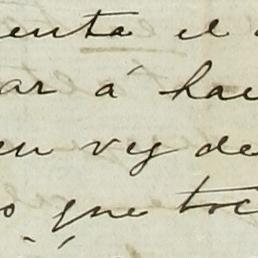 enta el
ar á hac
en vez de
o que toc